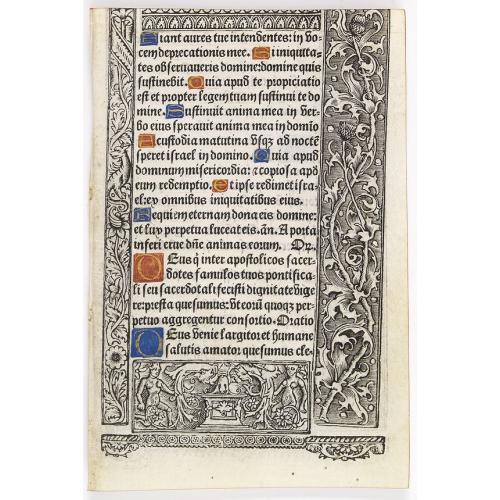 Fiant aures tue intendentes: in vo-
cem deprecationis mee. Si iniquita-
tes obseruaueris domine: domine quis
sustinebit. Quia apud te propiciatio
est et propter legem tuam sustinui te do
mine. Sustinuit anima mea in ver-
bo eius sperauit anima mea in domio
A custodia matutina vsqz ad noctē
speret israel in domino. Quia apud
dominum misericordia: z copiosa apd
eum redemptio. Et ipse redimet isra-
el: ex omnibus iniquitatibus eius.
Requiem eternam dona eis domine:
et lux perpetua luceat eis. añ. A porta
inferi erue dñe animas eorum. Or.
Deus q̇ inter apostolicos sacer-
dotes famulos tuos pontifica-
li seu sacerdotali fecisti dignitate vige
re: presta quesumus: vt eorū quoqz per-
petuo aggregentur consortio. Oratio
Deus venie largitor et humane
salutis amator quesumus cle-